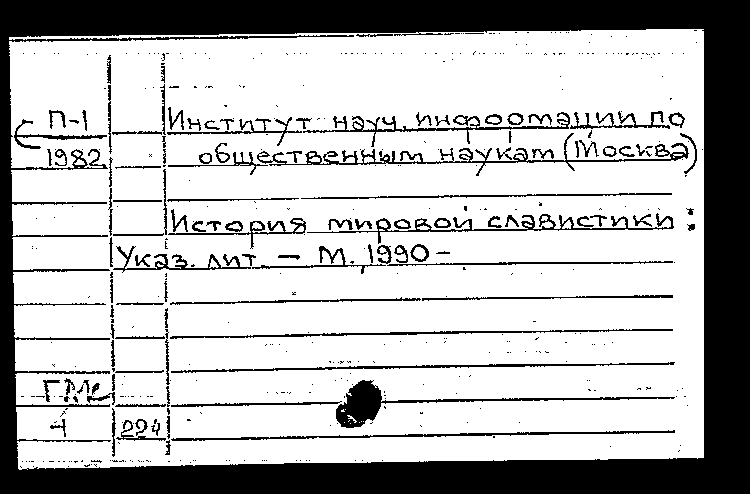 П-1
1982
Институт науч. информации по
общественным наукам (Москва)
История мировой славистики :
Указ. лит. – М., 1990 –
224